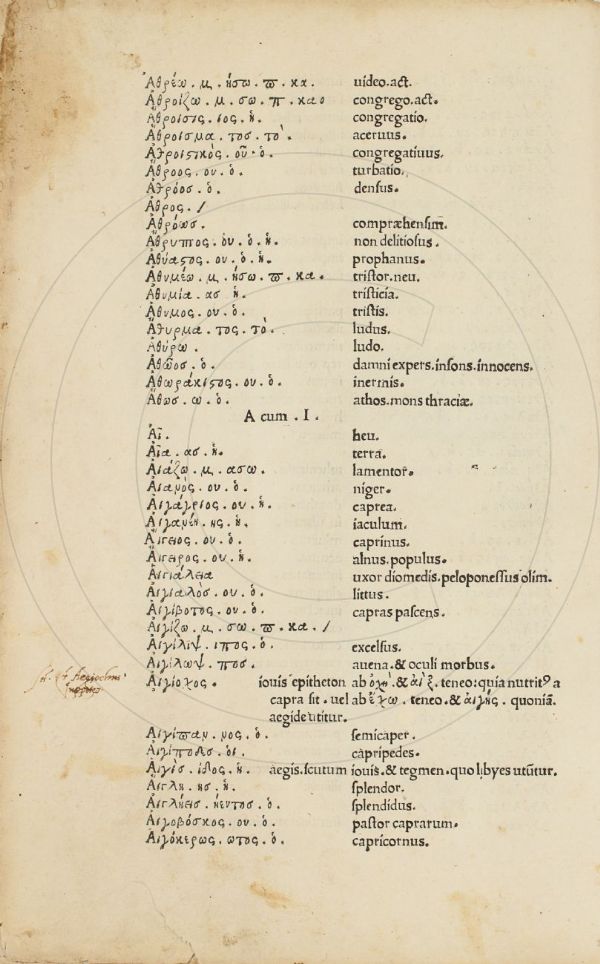 Ἀθρέω. μ. ήσω. ϖ. κα. uideo.act.
Ἀθροίζω. μ. σω. π. κα. congrego.act.
Ἄθροισις. ιος. ἡ. congregatio.
Ἄθροισμα. τος. τὸ. aceruus.
Ἀθροιστικὸς. οῦ. ὁ. congregatiuus.
Ἄθροος. ου. ὁ. turbatio.
Ἀθρόος. ὁ. densus.
Ἄθρος. /
Ἀθρόως. compræhensim.
Ἄθρυπτος. ου. ὁ. ἡ. non delitiosus.
Ἀθύαστος. ου. ὁ. ἡ. prophanus.
Ἀθυμέω. μ. ήσω. ϖ. κα. tristor.neu.
Ἀθυμία. ασ ἡ. tristicia.
Ἄθυμος. ου. ὁ. tristis.
Ἄθυρμα. τος. τὸ. ludus.
Ἀθύρω. ludo.
Ἀθῶος. ὁ. damni expers.insons.innocens.
Ἀθωράκιστος. ου. ὁ. inermis.
Ἄθως. ω. ὁ. athos.mons thraciæ.
A cum .I.
Αἲ. heu.
Αἶα. ασ. ἡ. terra.
Αἰάζω. μ. ασω. lamentor.
Αἰανὸς. ου. ὁ. niger.
Αἰγάγριος. ου. ἡ. caprea.
Αἰγανέη. ης. ἡ. iaculum.
Αἴγειος. ου. ὁ. caprinus.
Αἴγειρος. ου. ἡ. alnus.populus.
Αἰγιάλεια uxor diomedis.peloponessus olim.
Αἰγιαλὸς. ου. ὁ. littus.
Αἰγίβοτος. ου. ὁ. capras pascens.
Αἰγίζω. μ. σω. ϖ. κα. /
Αἰγίλιψ. ιπος. ὁ. excelsus.
Αἰγίλωψ. πος. auena.& oculi morbus.
Αἰγίοχος. iouis epitheton ab ὀχὴ.& αἲξ. teneo:quia nutritꝰ a
capra sit.uel ab ἔχω. teneo.& αἰγὴς. quoniã.
aegide utitur.
Αἰγίπαν. νος. ὁ. semicaper.
Αἰγίποδεσ. οἱ. capripedes.
Αἰγὶς. ιδος. ἡ. aegis.scutum iouis.& tegmen.quo libyes utũtur.
Αἴγλη. ησ. ἡ. splendor.
Αἰγλήεισ. ήεντος. ὁ. splendidus.
Αἰγοβόσκος. ου. ὁ. pastor caprarum.
Αἰγόκερως. ωτος. ὁ. capricornus.